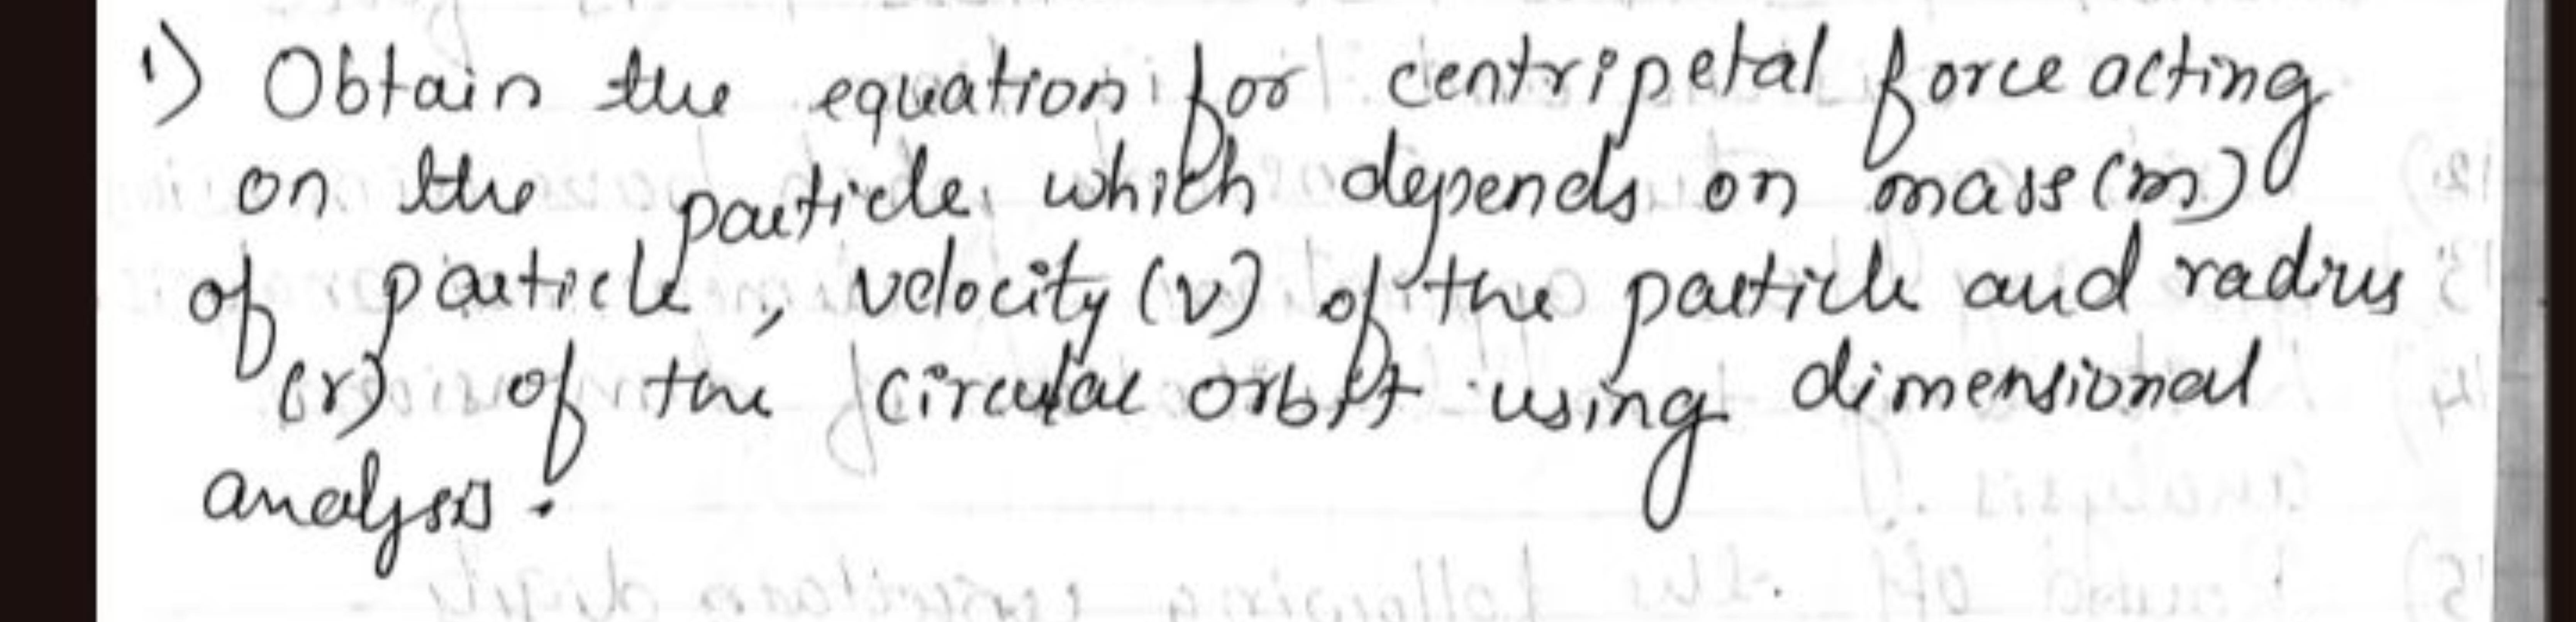 1) Obtain the equation for centripetal force acting
on the particle which depends on mass (m)
of particle, velocity (v) of the particle and radius
(r) of the circular orbit using dimensional
analysis.